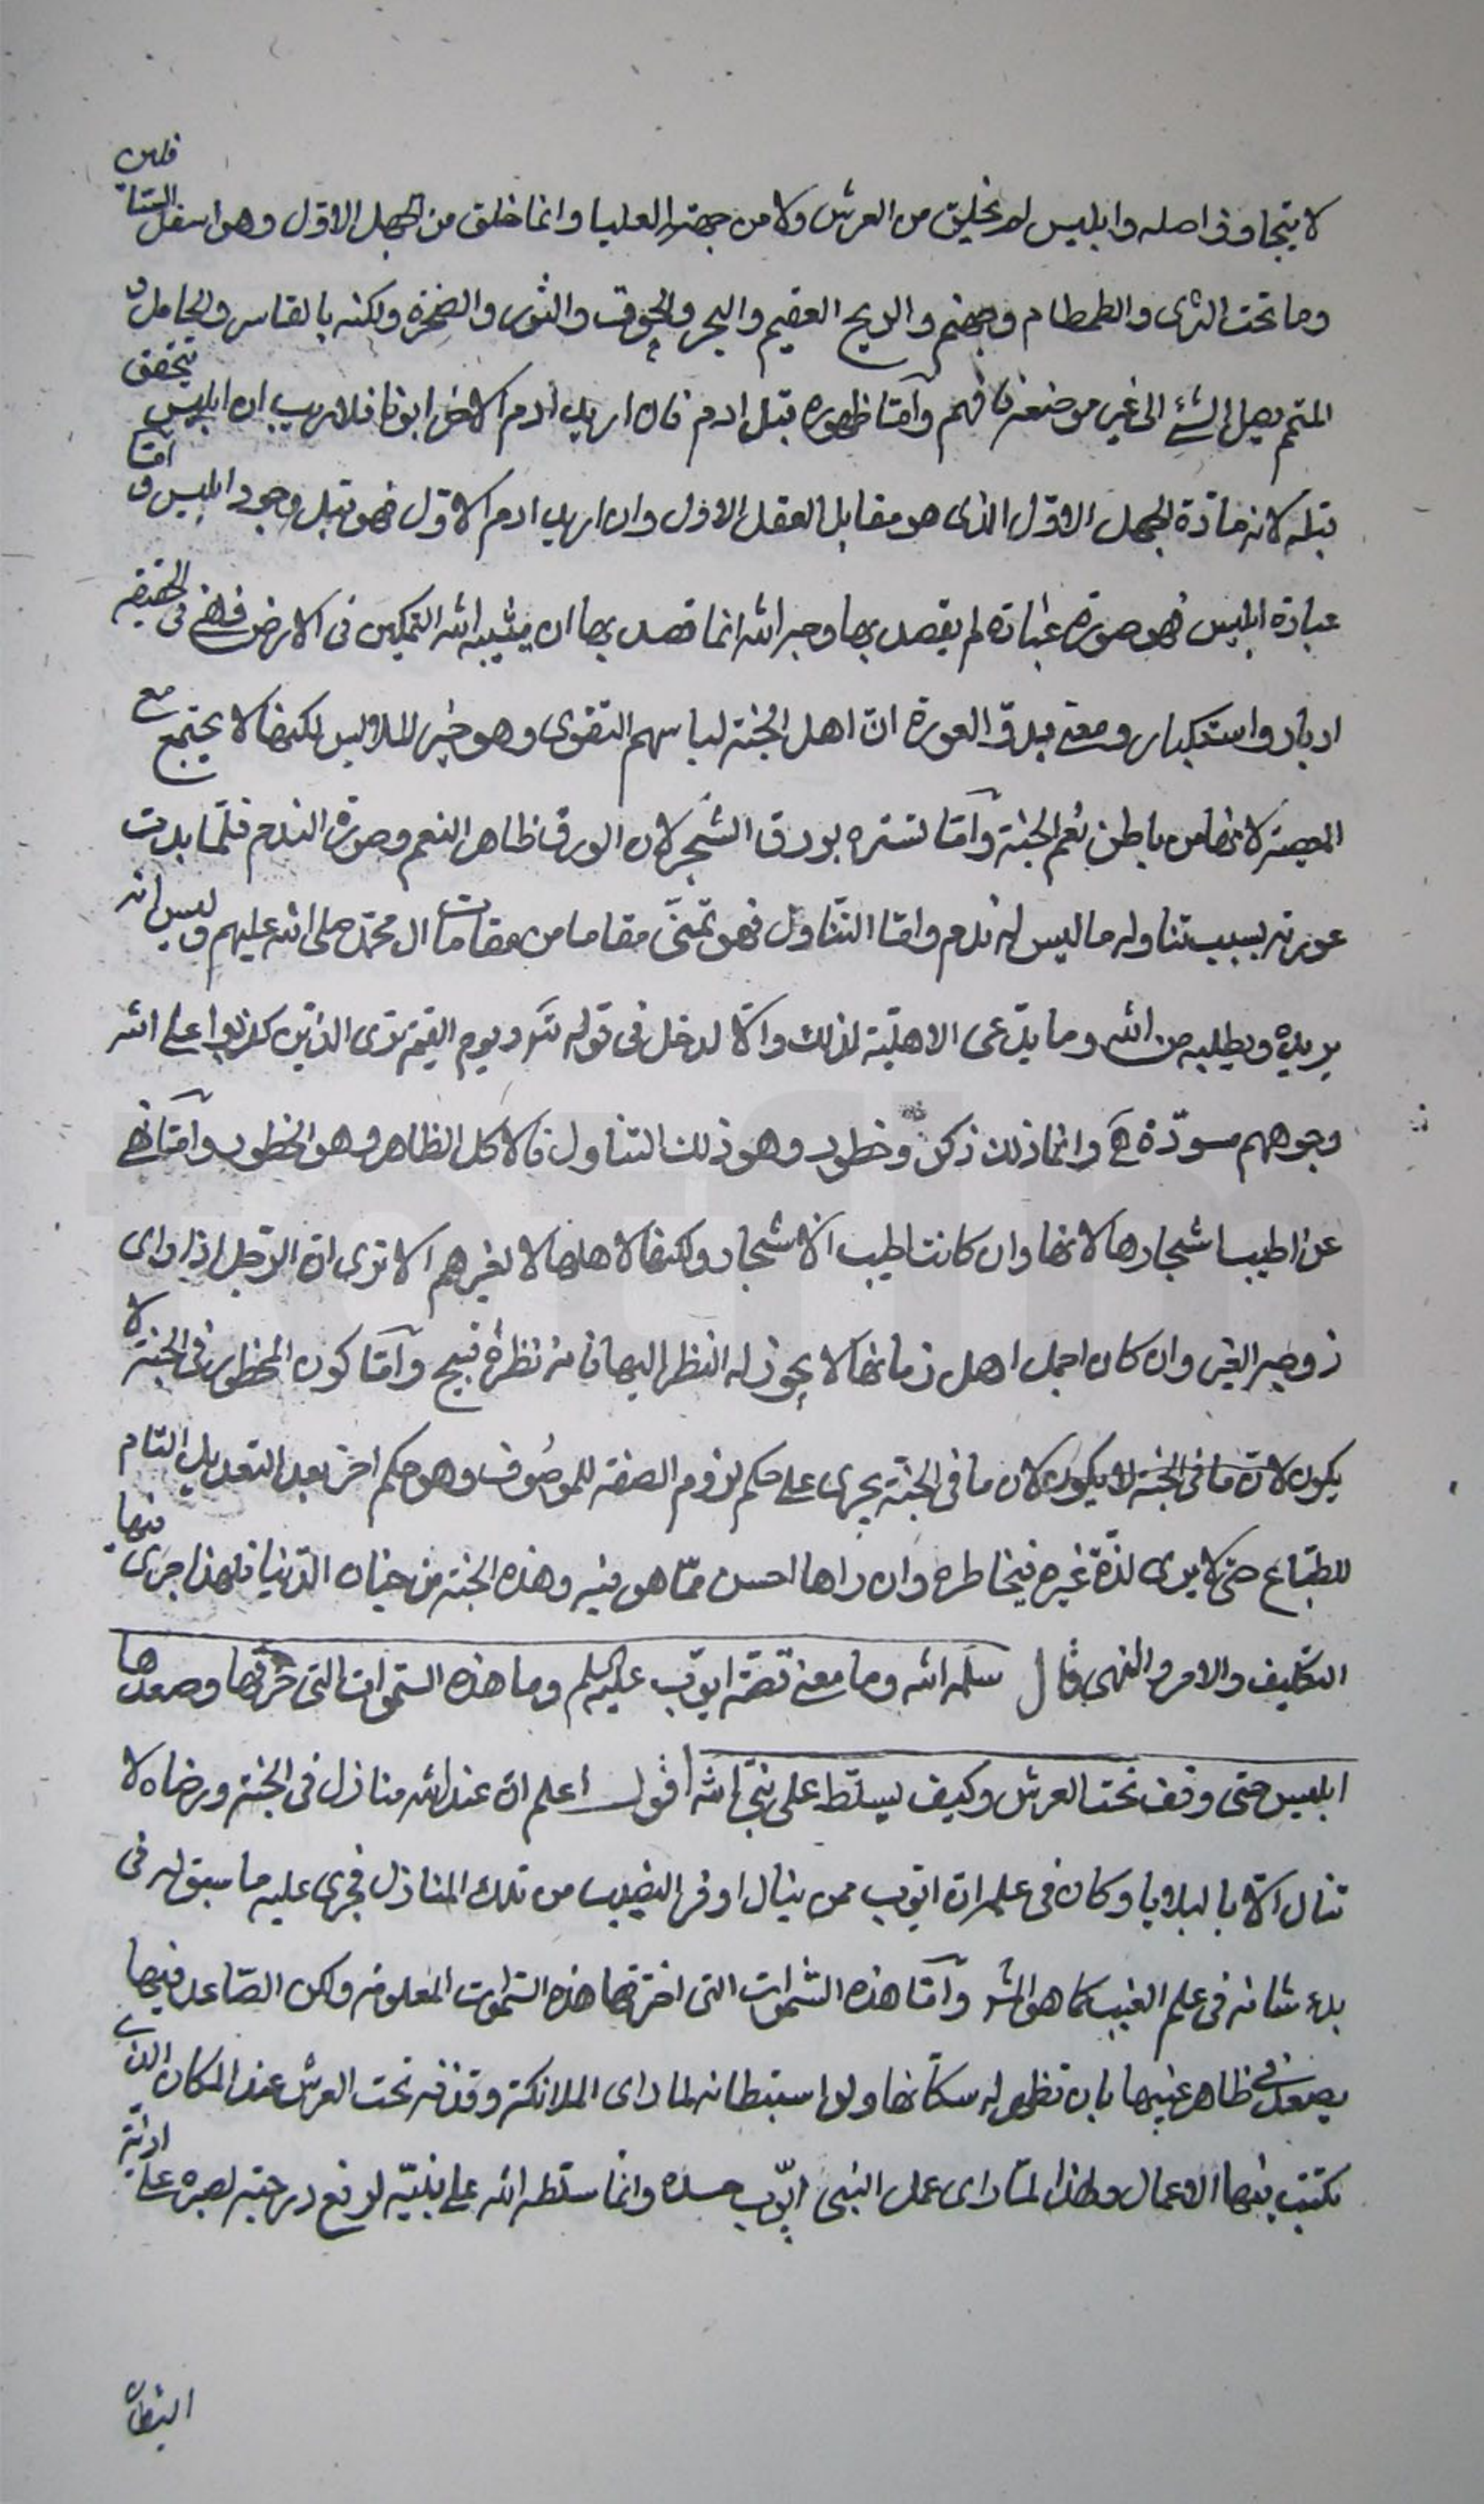 لا يتجاوز اصله وابليس لم يخلق من العرش ولا من جهته العليا وانما خلق من الجهل الاول وهو اسفل السافلين
وما تحت الثرى والطمطام وجهنم والريح العقيم والبحر والحوت والثور والصخرة ولكنه بالقاسر والحامل و
المتمم يصل الشئ الى غير موضعه فافهم وامّا ظهوره قبل ادم فان اريد ادم الاخر ابونا فلا ريب ان ابليس تحقق
قبله لانه مادّة الجهل الاوّل الذى هو مقابل العقل الاول وان اريد ادم الاوّل فهو قبل وجود ابليس و امّا
عبادة ابليس فهو صورة عبادة لم يقصد بها وجه الله انما قصد بها ان يثيبه الله التمكين فى الارض فهى فى الحقيقه
ادبار واستكبار ومعنى بدوّ العورة انّ اهل الجنة لباسهم التقوى وهو خير الملابس لكنها لا يجتمع مع
المعصية لانها من باطن نعم الجنة وامّا تستره بورق الشجر لان الورق ظاهر النعم وصورة الندم فلمّا بدت
عورته بسبب تناوله ما ليس له ندم وامّا التناول فهو تمنّى مقاما من مقامات ال محمّد صلى الله عليهم وليس انه
يريده ويطلبه من الله وما يدّعى الاهليّة لذلك والّا لدخل فى قوله تع ويوم القيمة ترى الذين كذبوا على الله
وجوههم مسودّة وانما ذلك ذكر وخطور وهو ذلك التناول فالاكل الظاهر وهو الخطور وامّا نهى
عن اطيب اشجارها لانها وان كانت اطيب الاشجار ولكنها لاهلها لا لغيرهم الا ترى ان الرّجل اذا راى
زوجة الغير وان كان اجمل اهل زمانها لا يجوز له النظر اليها فانه نظرة قبيح وامّا كون المحظور فى الجنة لا
يكون لانّ ما فى الجنة لا يكون لان ما فى الجنّة يجرى على حكم لزوم الصفة للموصوف وهو حكم اخر بعد التعديل التام
للطباع حتى لا يرى لذّة غيره فيخاطره وان راها احسن ممّا هو فيه وهذه الجنة من جنان الدّنيا فلهذا جرى فيها
التكليف والامر والنهى قال سلمه الله وما معنى قصّة ايوب عليه السلم وما هذه السموات التى خرقها وصعدها
ابليس حتى وقف تحت العرش وكيف يسلّط على نبىّ الله اقول اعلم انّ عند الله منازل فى الجنة ورضاه لا
تنال الّا بالبلايا وكان فى علمه انّ ايّوب ممن ينال اوفر النصيب من تلك المنازل فجرى عليه ما سبق له فى
بدء شانه فى علم الغيب كما هو المشر وامّا هذه السّموات التى اخترقها هذه السّموات المعلومة ولكن الصّاعد فيها
يصعد فى ظاهر غيبها بان تظهر له سكّانها ولو استبطانه لما راى الملائكة وقذفه تحت العرش عند المكان الذى
تكتب فيها الاعمال ولهذا لمّا راى عمل النبى ايّوب حسده وانما سلّطه الله على نبيّه لرفع درجته لصبره على اذيّة
الشيطان